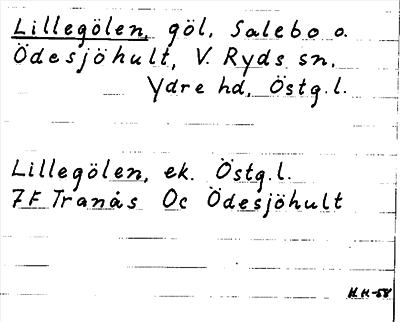 Lillegölen, göl, Salebo o.
Ödesjöhult, V. Ryds sn,
Ydre hd, Östg.l.
Lillegölen, ek. Östg.l.
7F Tranås Oc Ödesjöhult
H.H-58